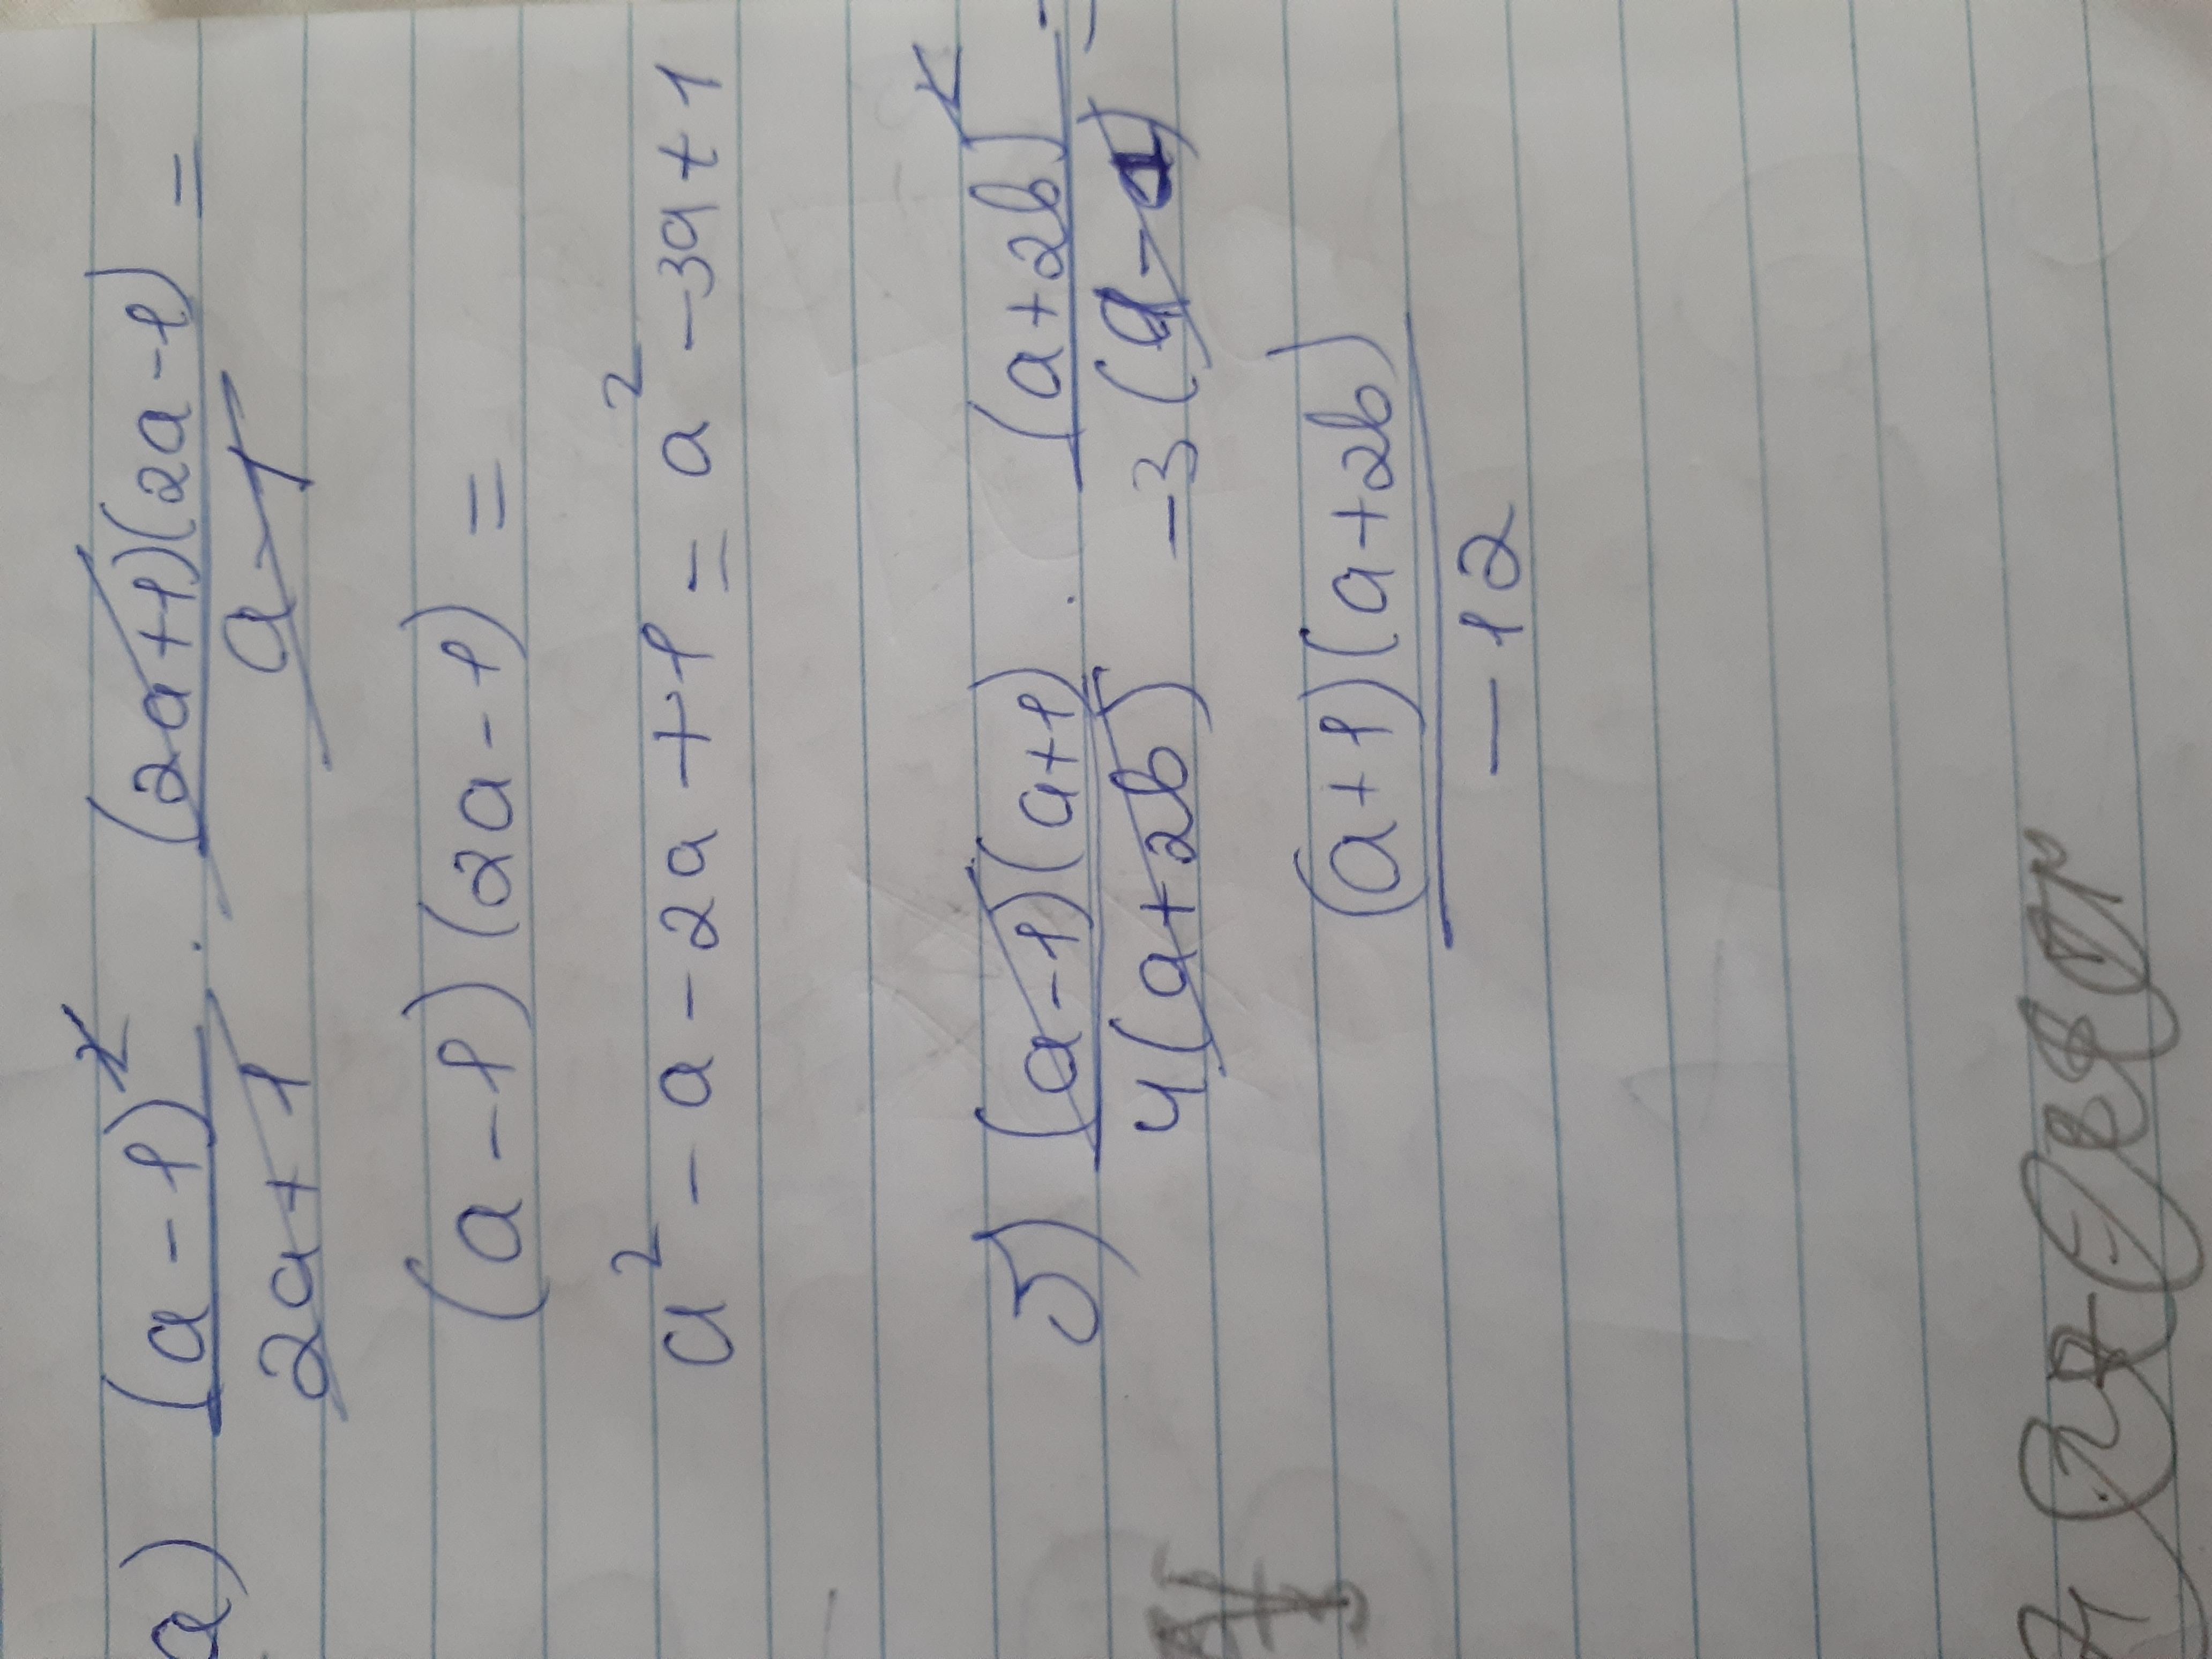 а) (a-1)² / 2a+1 · (2a+1)(2a-1) / a-1 =
(a-1)(2a-1) =
a² - a - 2a + 1 = a² - 3a + 1
б) (a-1)(a+1) / 4(a+2b) · (a+2b)² / -3(a-1) =
(a+1)(a+2b) / -12